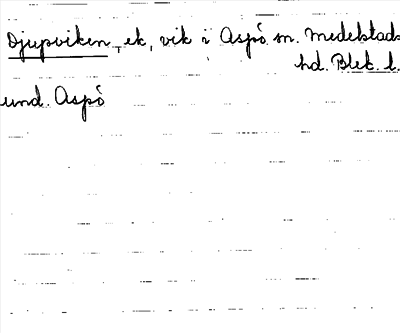 Djupviken, ek, vik i Aspö sn. Medelstads
hd. Blek. l.
und. Aspö